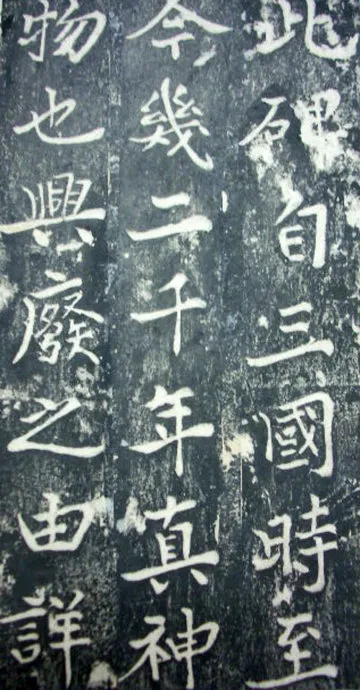 此碑自三國時至
今幾二千年真神
物也興廢之由詳